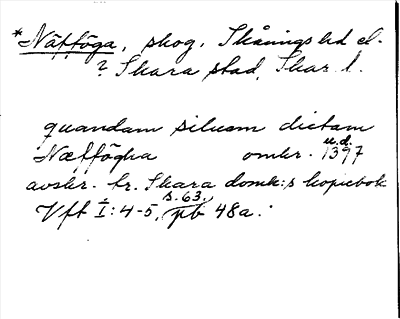 *Näfföga, skog. Skånings hd el.
? Skara stad, Skar. l.
quandam siluam dictam
u.d.
Næfføgha omkr. 1397
avskr. fr. Skara domk:s kopiebok
s. 63.
Vft I:4-5, pb 48a.